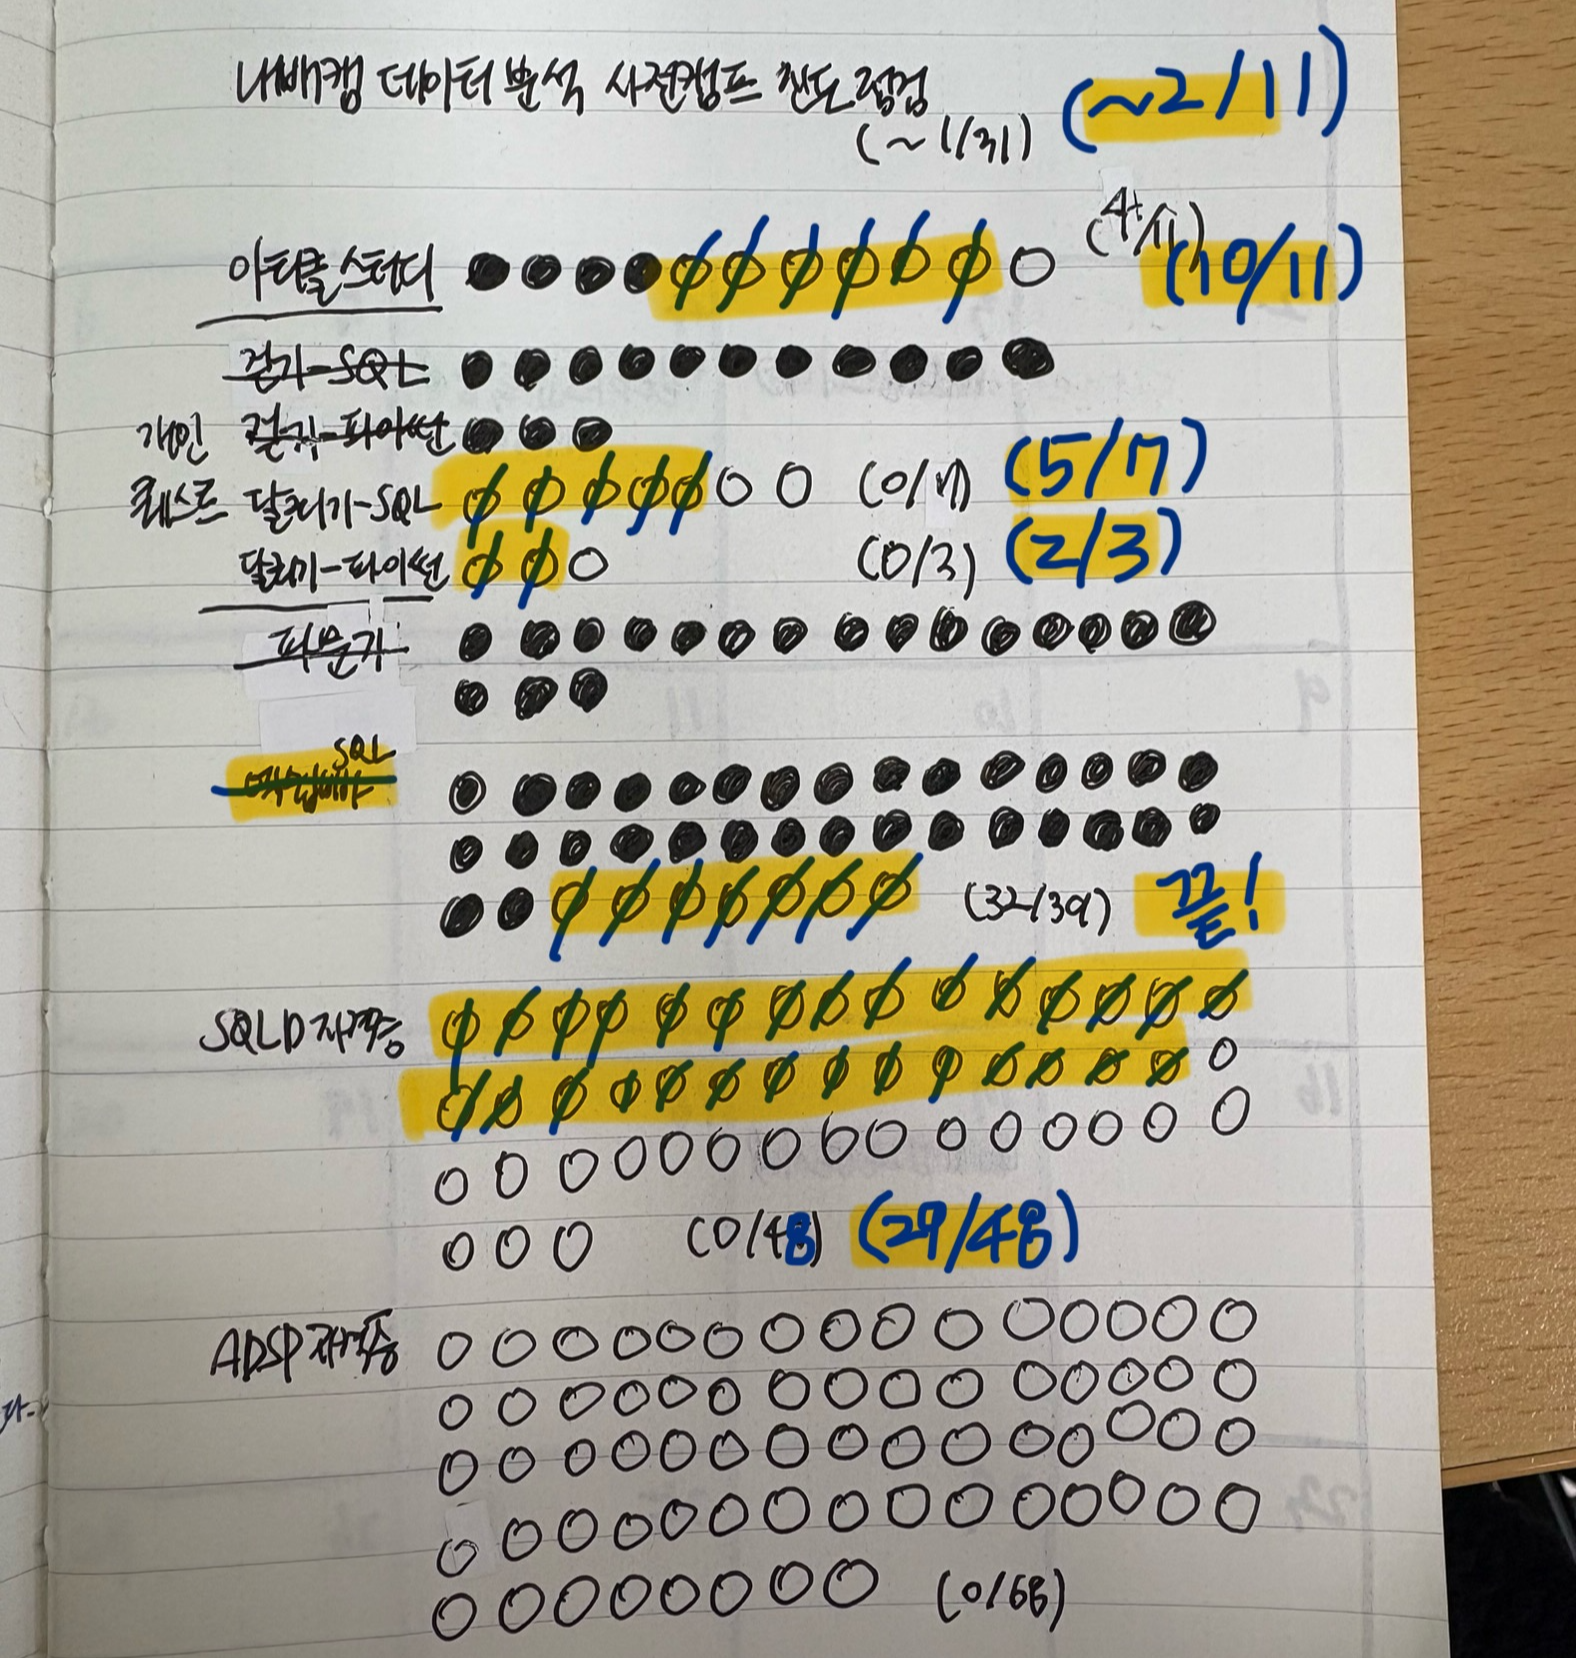 내배캠 데이터 분석 사전캠프 진도 점검
(~1/31) (~2/11)
아티클스터디 (4/11) (10/11)
걷기-SQL
개인 걷기-파이썬
퀘스트 달리기-SQL (0/7) (5/7)
달리기-파이썬 (0/3) (2/3)
파문기
SQL
(32/39) 끝!
SQLD 자격증
(0/48) (29/48)
ADSP 자격증
(0/68)